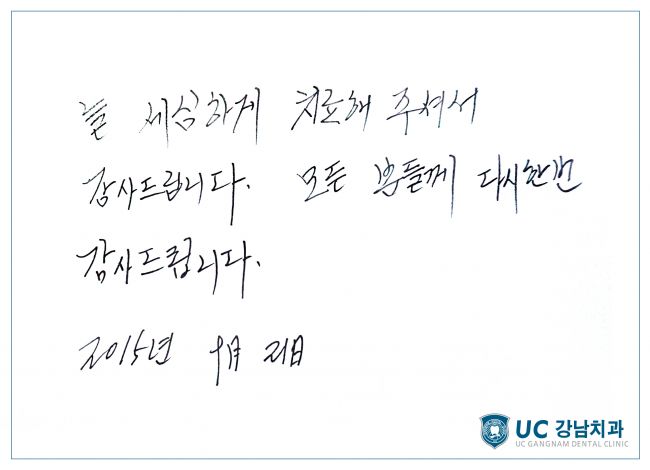 늘 세심하게 치료해 주셔서
감사드립니다. 모든 분들께 다시한번
감사드립니다.
2015년 9月 21日
UC 강남치과
UC GANGNAM DENTAL CLINIC